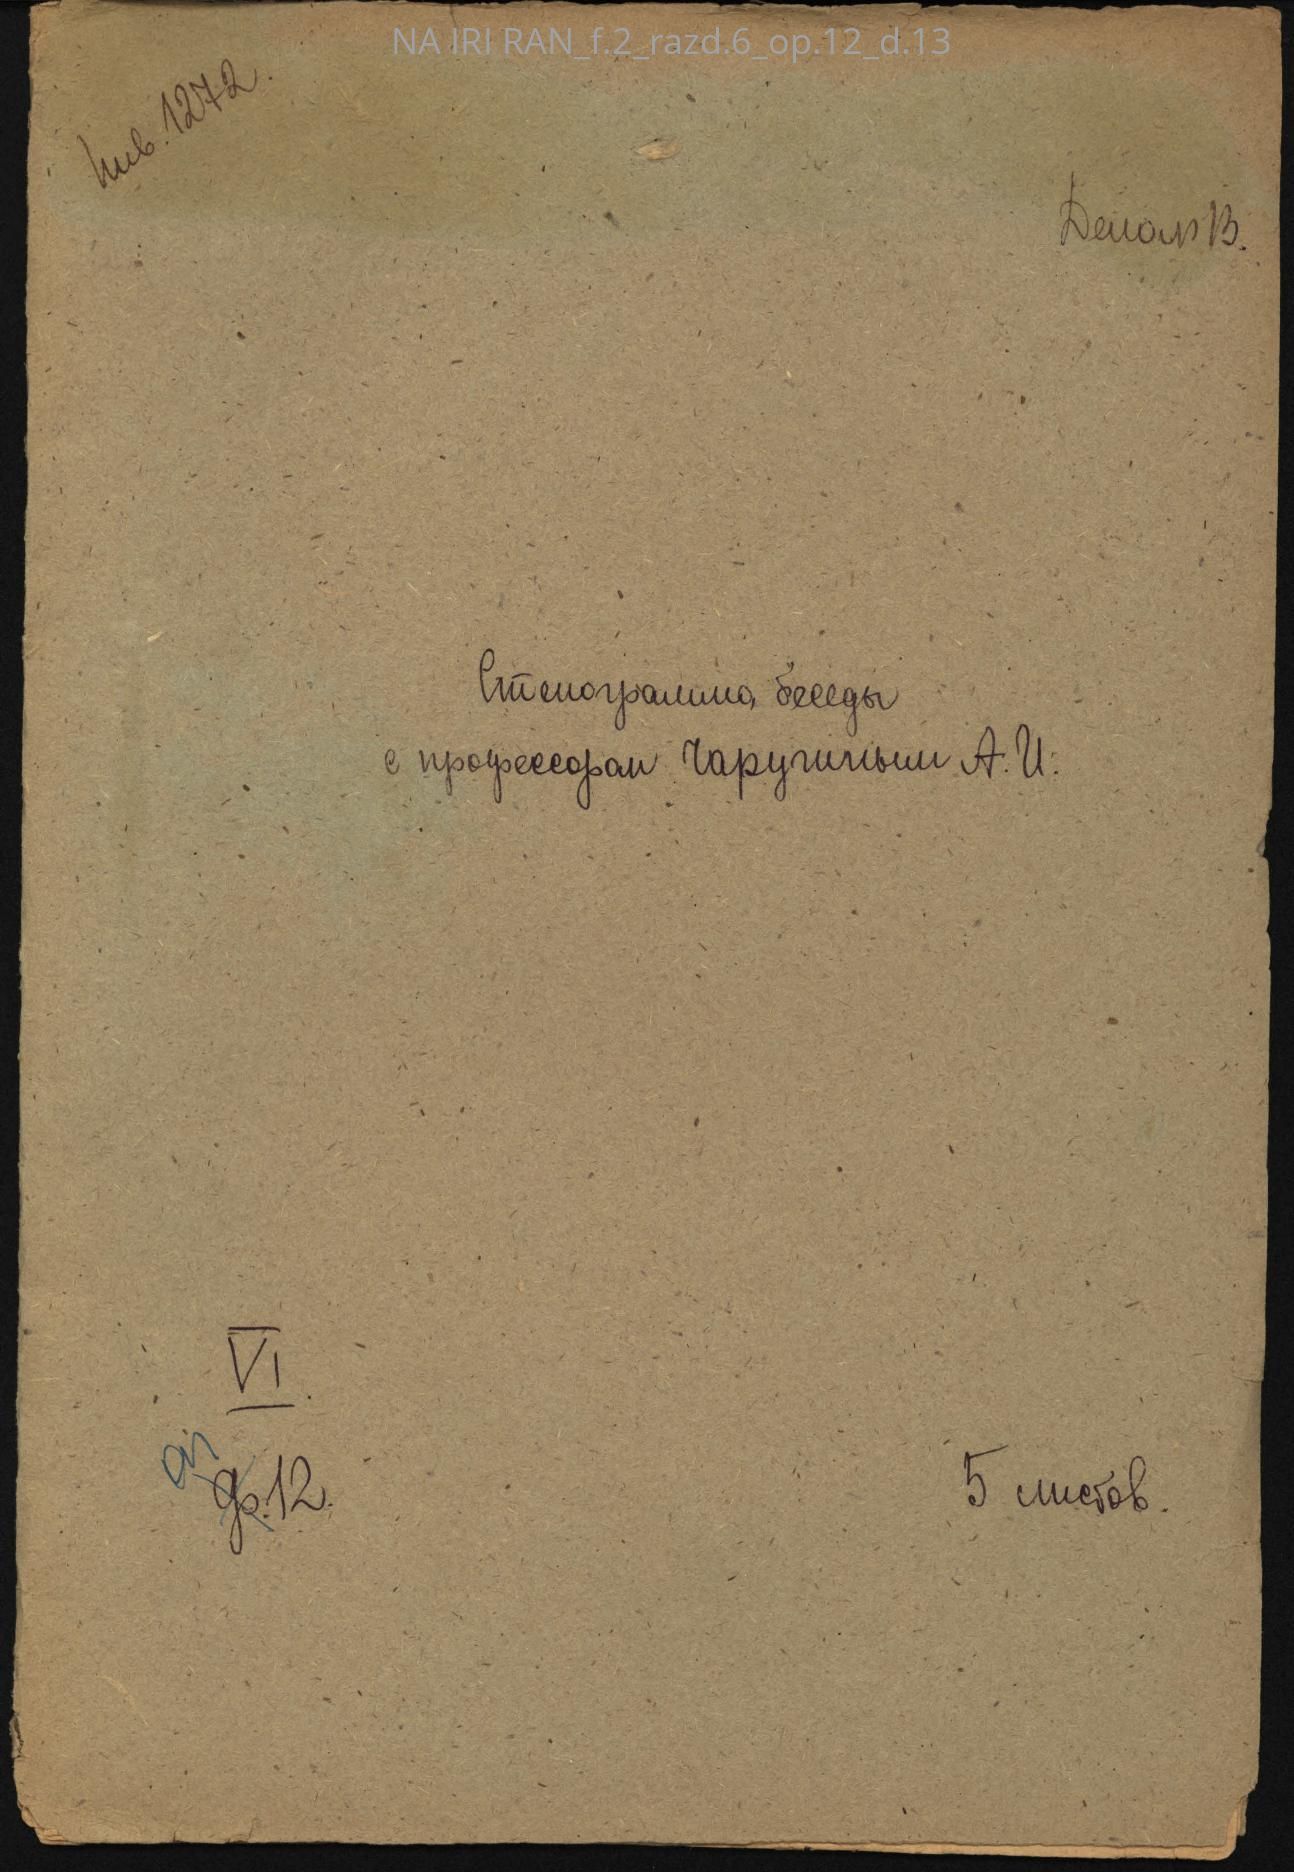 NA IRI RAN_f.2_razd.6_op.12_d.13
Инв. 1272.
Стенограмма беседы
с профессором Чаругиным А. И.
VI
12.
5 листов.